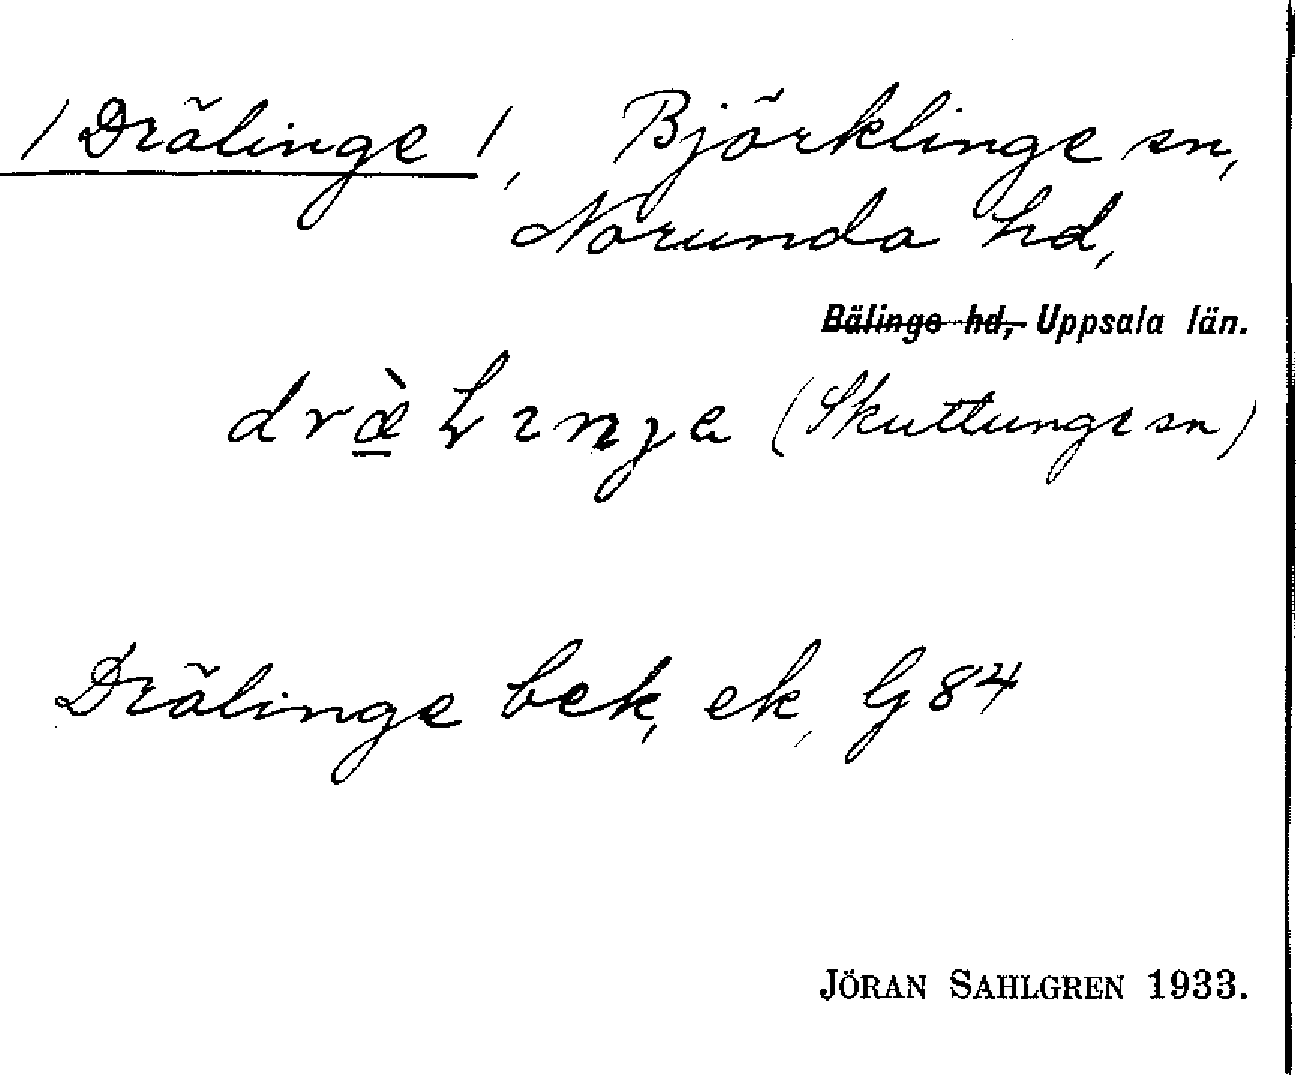 / Drälinge /, Björklinge sn,
Norunda hd,
Bälinge hd, Uppsala län.
(Skuttunge sn)
Drälinge bek, ek, G 84
JÖRAN SAHLGREN 1933.